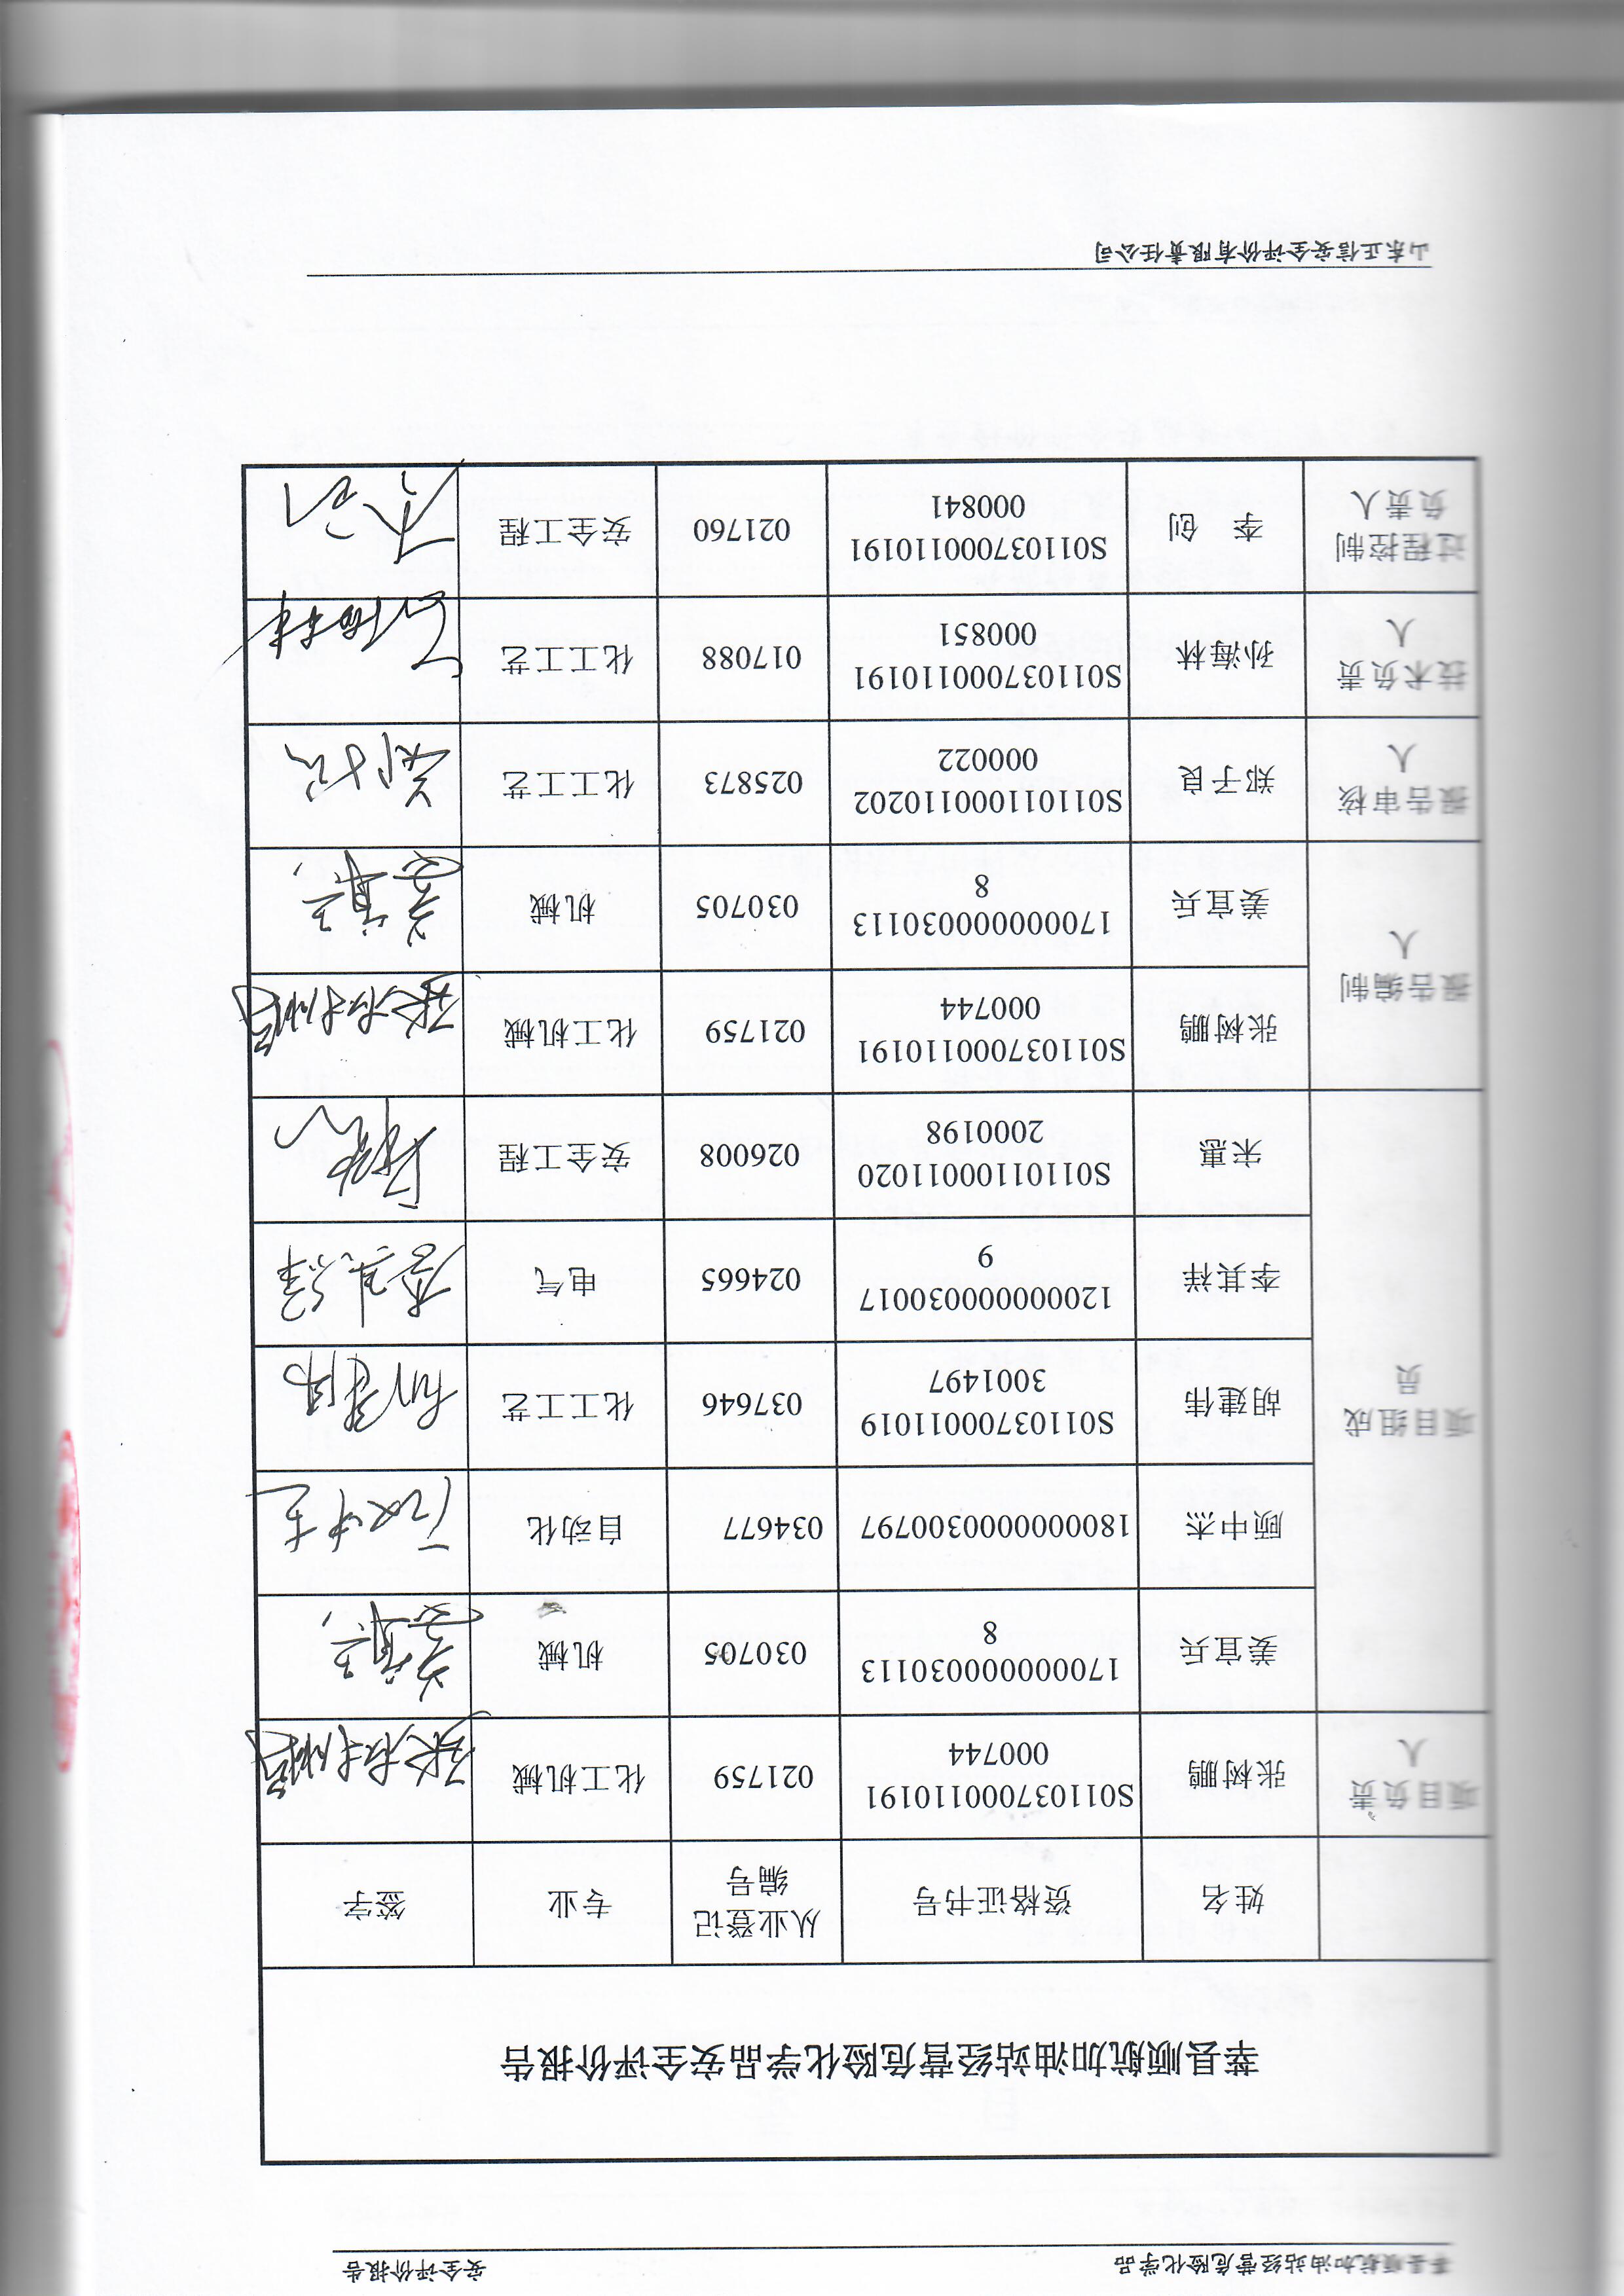 莘县顺航加油站经营危险化学品 安全评价报告
莘县顺航加油站经营危险化学品安全评价报告
姓名 资格证书号 从业登记 专业 签字
编号
项目负责 张树鹏 S011037000110191 021759 化工机械 张树鹏
人 000744
姜宜兵 170000000030113 030705 机械 姜宜兵
8
顾中杰 1800000000300797 034677 自动化 顾中杰
项目组成 胡建伟 S011037000011019 037646 化工工艺 胡建伟
员 3001497
李其祥 120000000030017 024665 电气 李其祥
9
宋惠 S011011000011020 026008 安全工程 宋惠
2000198
报告编制 张树鹏 S011037000110191 021759 化工机械 张树鹏
人 000744
姜宜兵 170000000030113 030705 机械 姜宜兵
8
报告审核 郑子良 S011011000110202 025873 化工工艺 郑子良
人 000022
技术负责 孙海林 S011037000110191 017088 化工工艺 孙海林
人 000851
过程控制 李 创 S011037000110191 021760 安全工程 李创
负责人 000841
山东正信安全评价有限责任公司